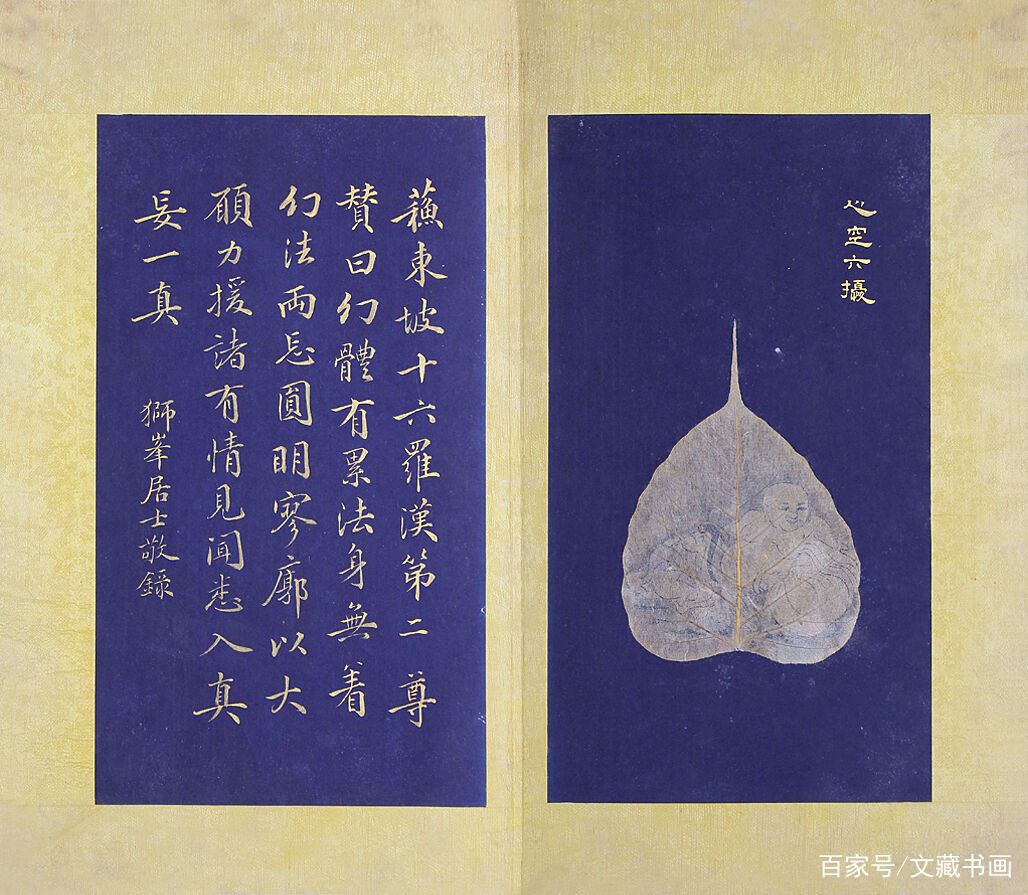 心空六攝
蘓東坡十六羅漢第二尊
贊曰幻體有累法身無着
幻法兩忘圓明寥廓以大
願力援諸有情見聞悉入真
妄一真
獅峯居士敬錄
百家号/文藏书画